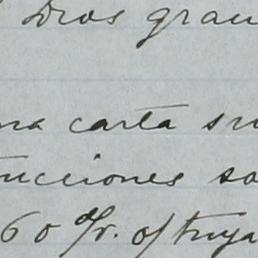 Dios gran
na carta su
nciones so
60 o/r. of tuya